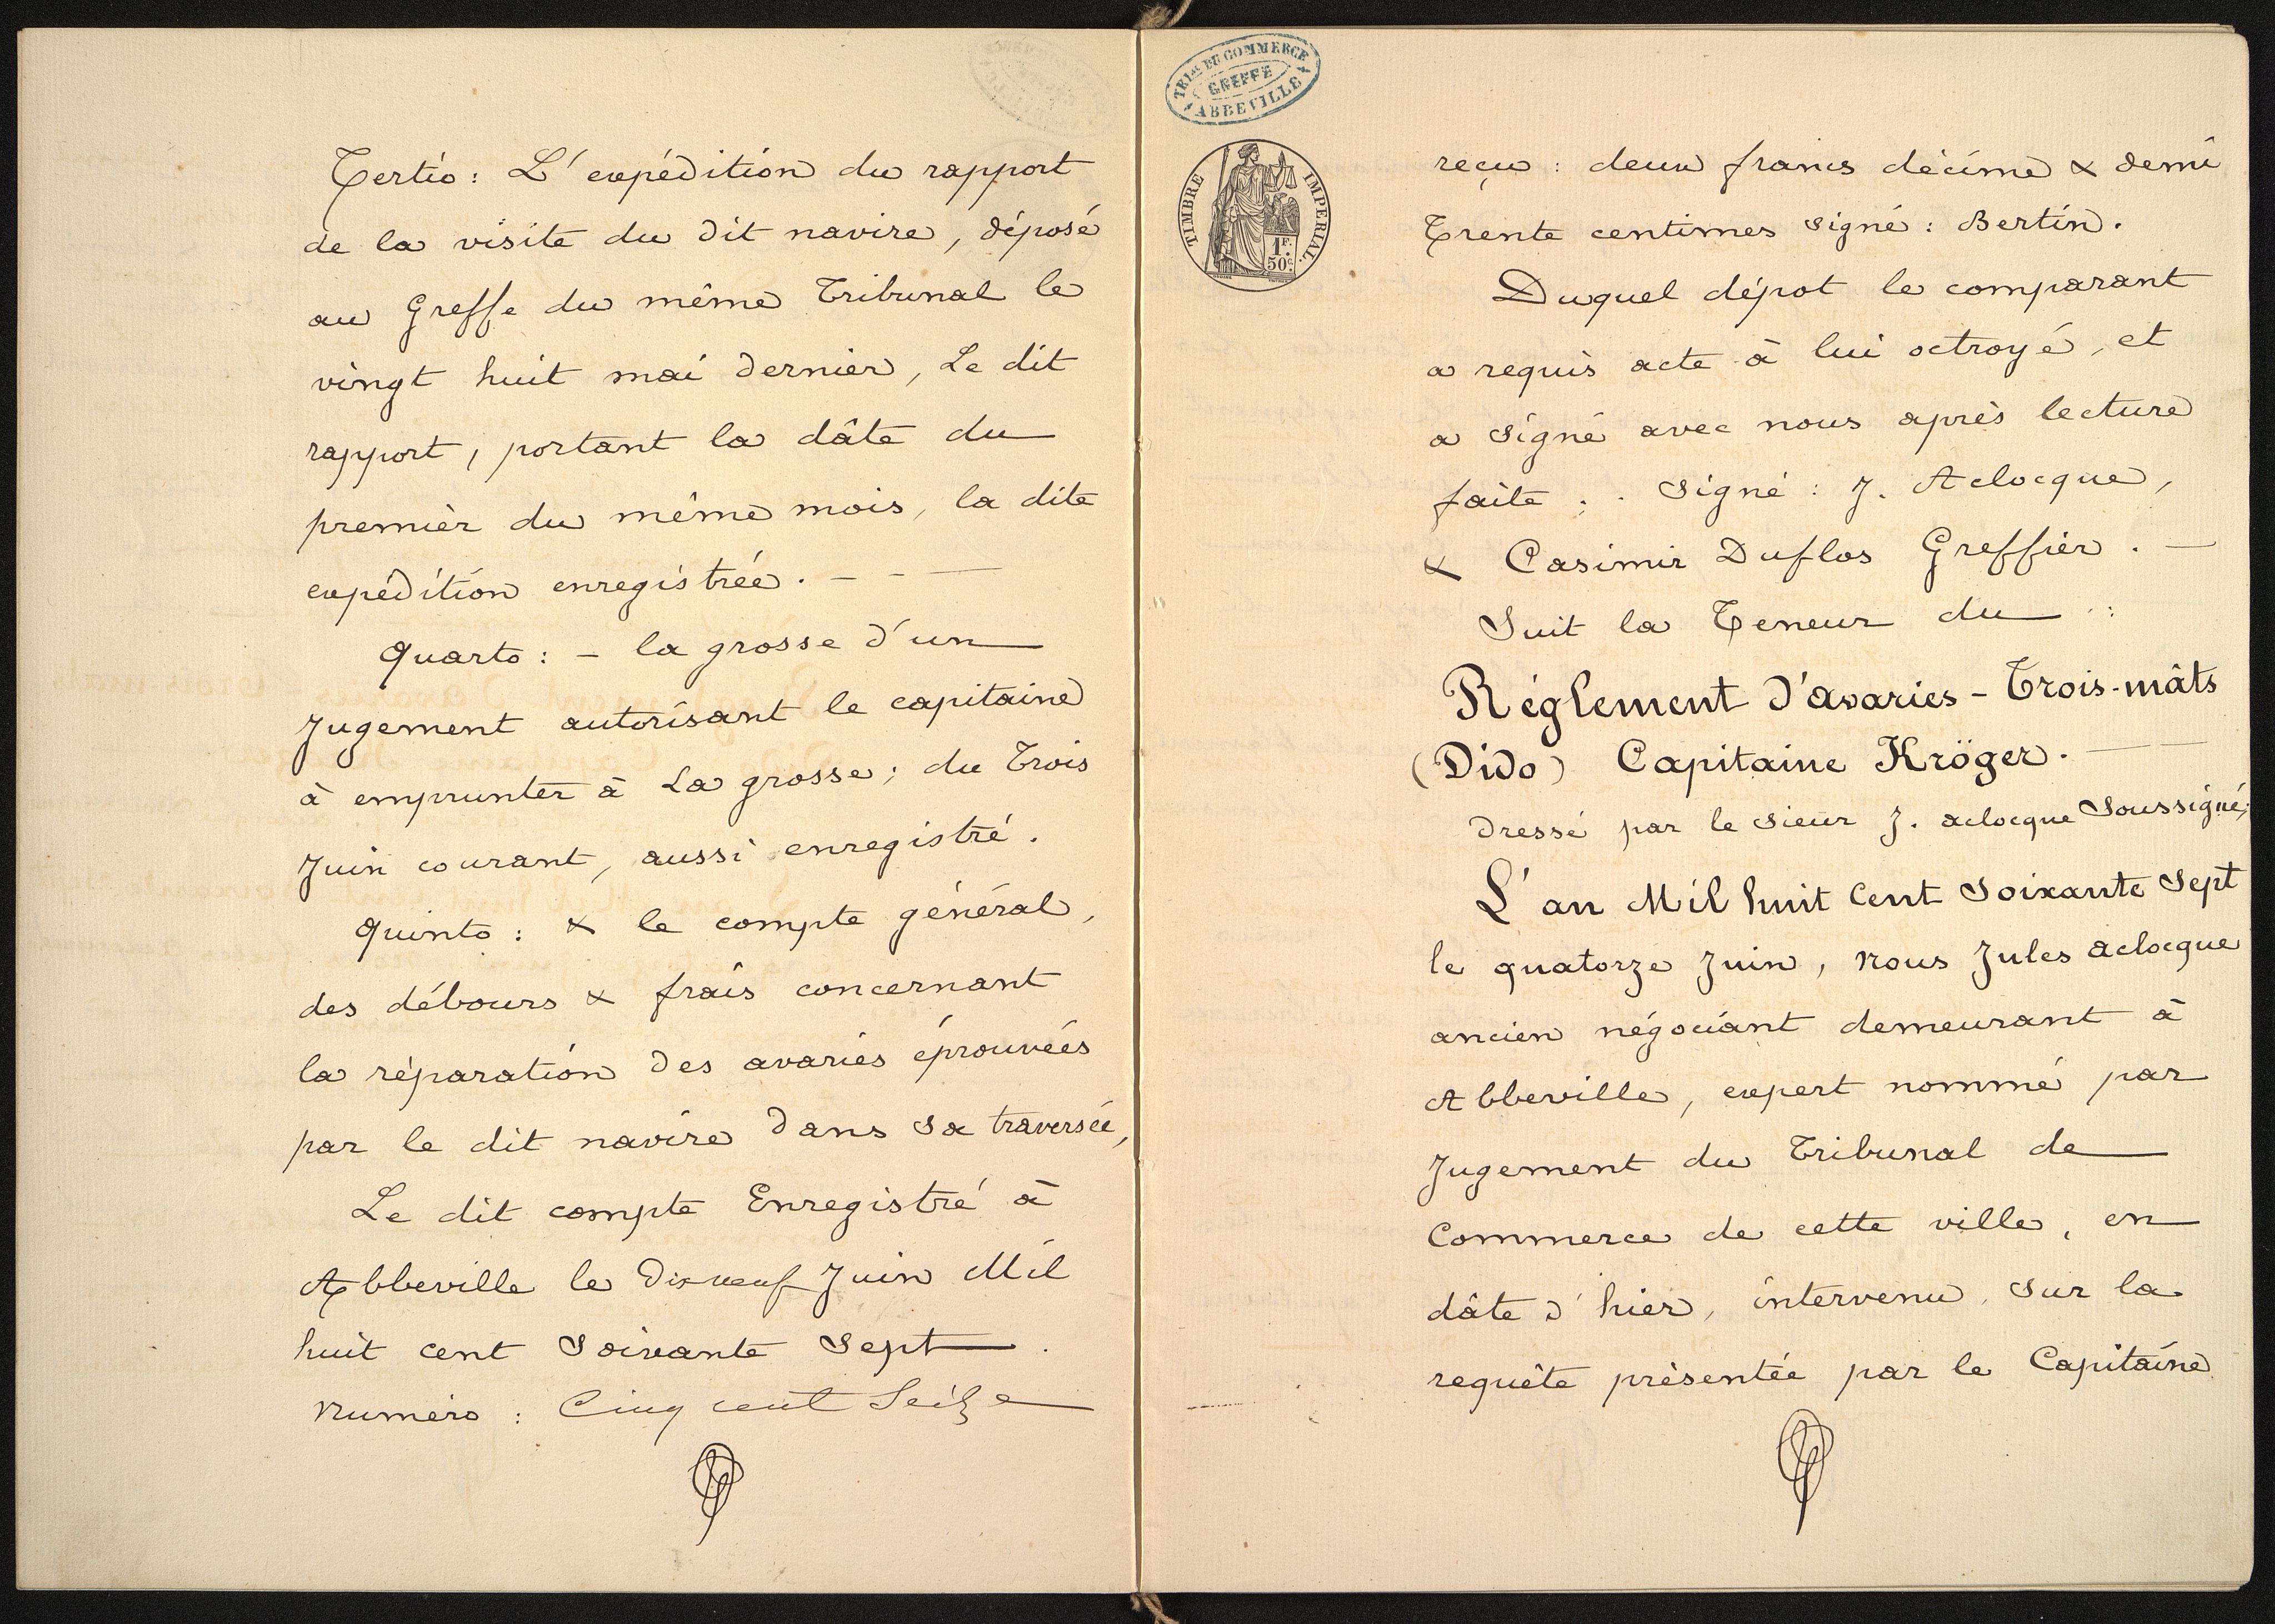 Tertio: L'expédition du rapport
de la visite du dit navire, déposé
au Greffe du même Tribunal le
vingt huit mai dernier, Le dit
rapport, portant la dâte du
premier du même mois, la dite
expédition enregistrée. - - —
Quarto: - la grosse d'un
Jugement autorisant le capitaine
à emprunter à La grosse; du Trois
Juin courant, aussi enregistré.
Quinto: & le compte général,
des débours & frais concernant
la réparation des avaries éprouvées
par le dit navire dans sa traversée,
Le dit compte Enregistré à
Abbeville le Dix neuf Juin Mil
huit cent Soixante Sept.
Numéro: Cinq cent Seize
TRIAL DU COMMERCE
GREFFE
ABBEVILLE
TIMBRE IMPERIAL.
1F.
50c.
reçu: deux francs décime & demi
Trente centimes signé: Bertin.
Duquel dépot le comparant
a requis acte à lui octroyé, et
a signé avec nous après lecture
faite; . Signé: J. Aclocque,
& Casimir Duflos Greffier. —
Suit la Teneur du :
Réglement d'avaries - Trois-mâts
(Dido) Capitaine Kröger. — —
Dressé par le sieur J. aclocque Soussigné;
L'an Mil huit Cent Soixante Sept
le quatorze Juin, Nous Jules aclocque
ancien négociant demeurant à
Abbeville, expert nommé par
Jugement du Tribunal de
Commerce de cette ville, en
dâte d'hier, intervenu, Sur la
requête présentée par le Capitaine